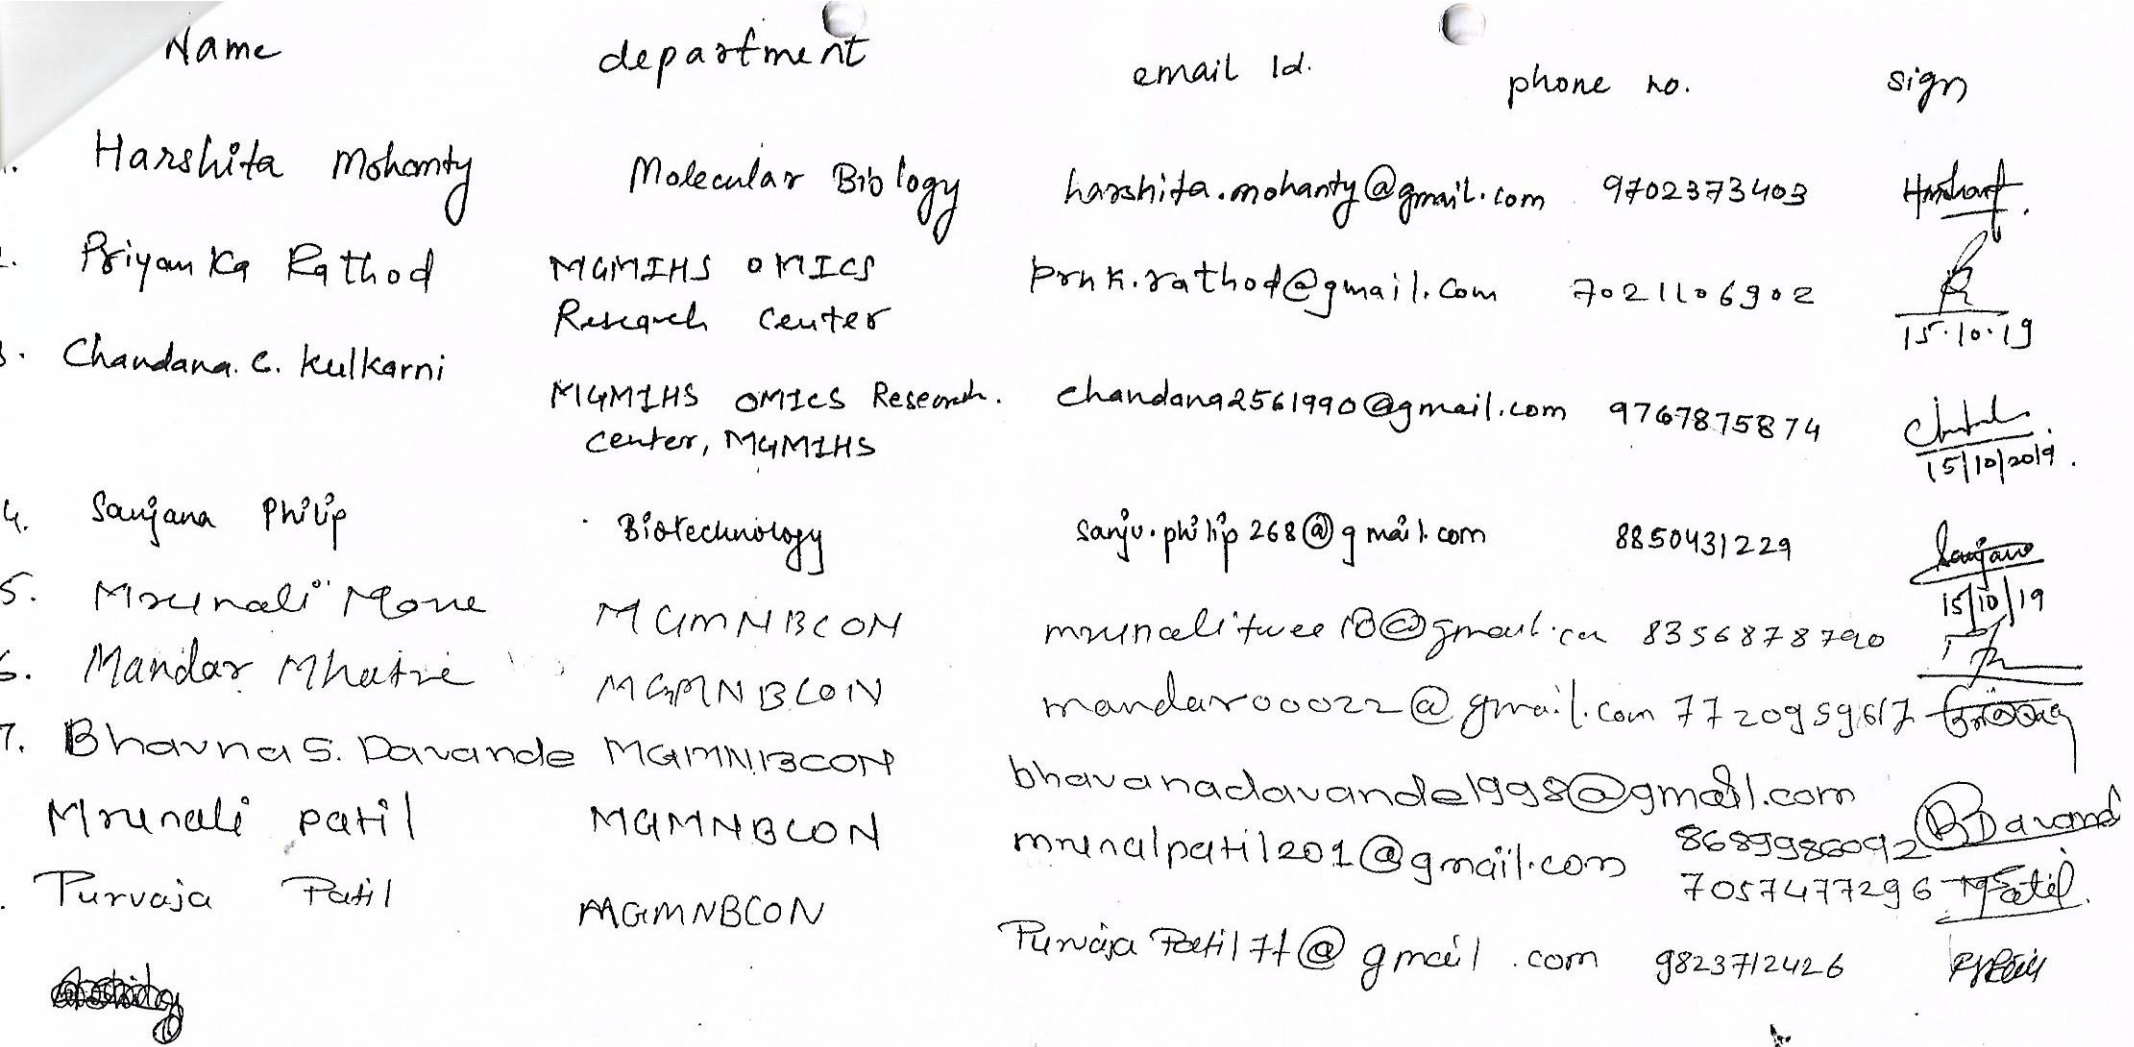 Name department email Id. phone no. sign
1. Harshita Mohanty Molecular Biology harshita.mohanty@gmail.com 9702373403
2. Priyanka Rathod MGMIHS OMICS prnk.rathod@gmail.com 7021106902
Research Center 15.10.19
3. Chandana. C. Kulkarni
MGMIHS OMICS Research. chandana2561990@gmail.com 9767875874
Center, MGMIHS 15/10/2019.
4. Sanjana Philip Biotechnology sanju.philip268@gmail.com 8850431229 Sanjana
15/10/19
5. Mrunali More MGMNBCON 8356878790
6. Mandar Mhatre MGMNBCON mandar00022@gmail.com 7720959617
7. Bhavna S. Davande MGMNBCON bhavanadavande1998@gmail.com
8689986092 BDavand
Mrunali patil MGMNBCON mrunalpatil201@gmail.com 7057477296 MPatil.
Purvaja Patil MGMNBCON PurvajaPatil77@gmail.com 9823712426